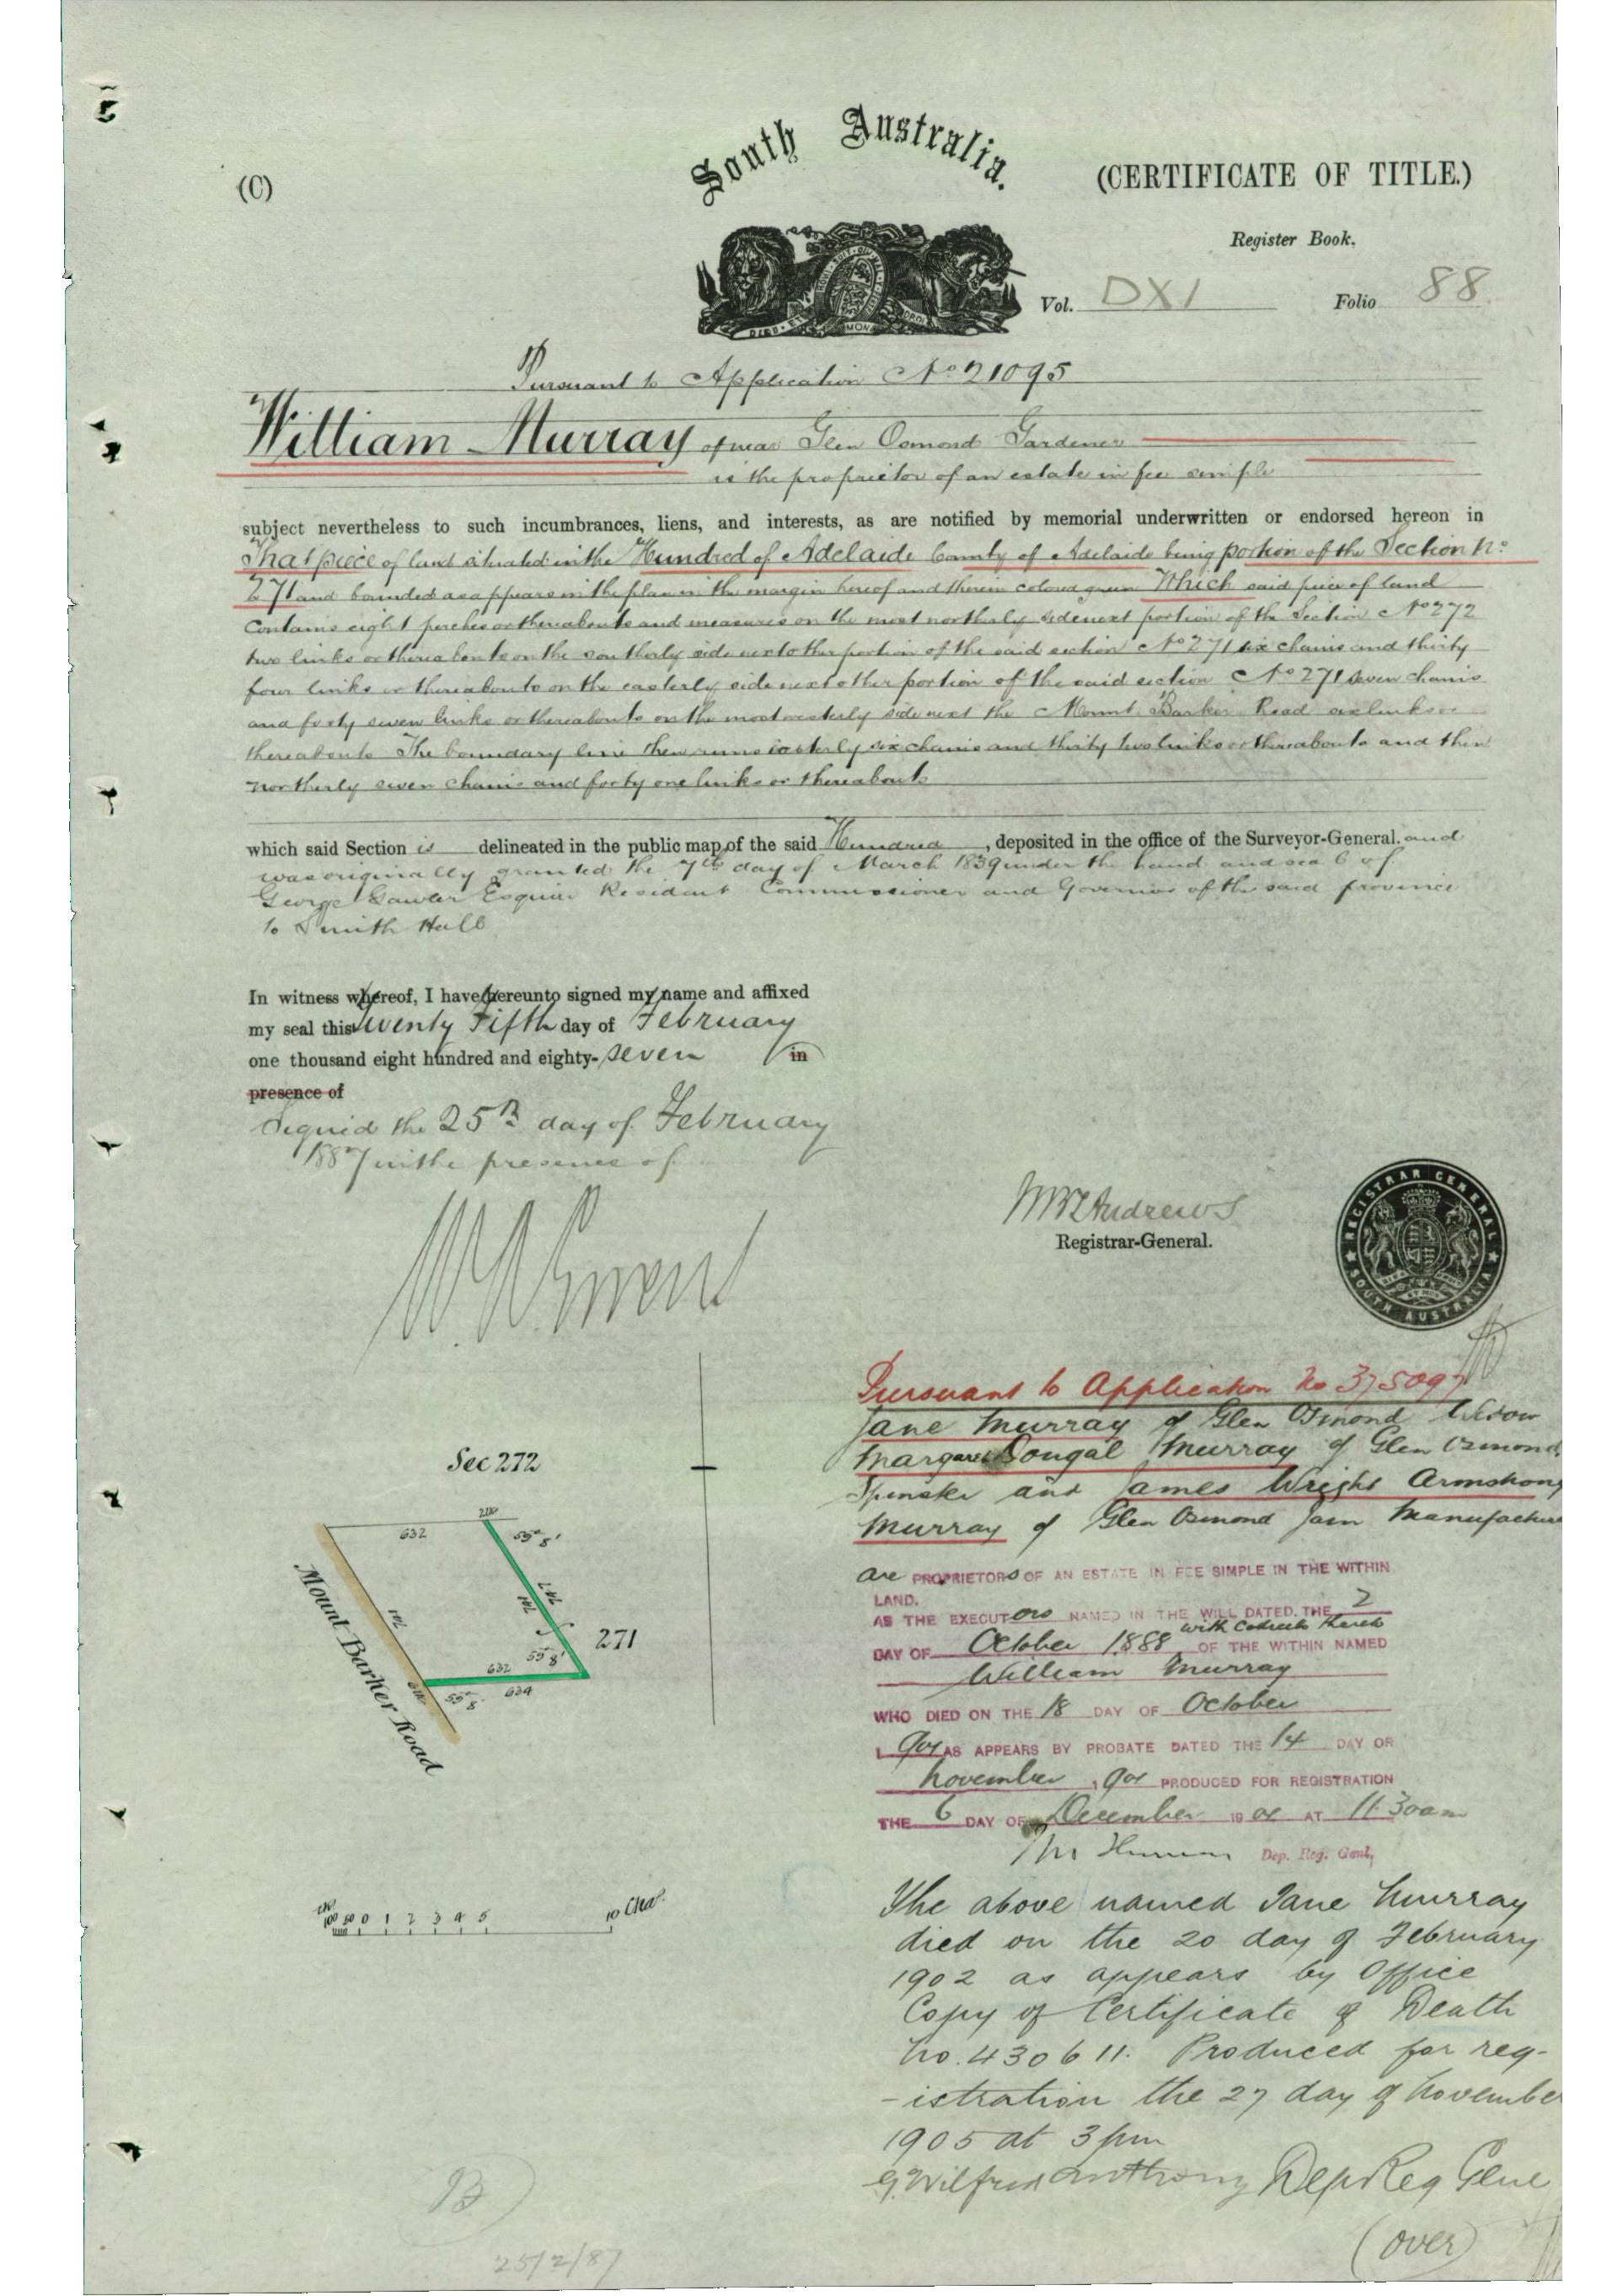 South Australia.
(C)
(CERTIFICATE OF TITLE.)
Register Book,
Vol. DXI Folio 88
Pursuant to Application No 21095
William Murray of near Glen Osmond Gardener
is the proprietor of an estate in fee simple
subject nevertheless to such incumbrances, liens, and interests, as are notified by memorial underwritten or endorsed hereon in
That piece of land situated in the Hundred of Adelaide County of Adelaide being portion of the Section No
271 and bounded as appears in the plan in the margin hereof and therein colored green Which said piece of land
Contains eight perches or thereabouts and measures on the most northerly side next portion of the Section No 272
two links or thereabouts on the southerly side next other portion of the said section No 271 six chains and thirty
four links or thereabouts on the easterly side next other portion of the said section No 271 seven chains
and forty seven links or thereabouts on the most westerly side next the Mount Barker Road six links or
thereabouts The boundary line then runs easterly six chains and thirty two links or thereabouts and then
northerly seven chains and forty one links or thereabouts
which said Section is delineated in the public map of the said Hundred , deposited in the office of the Surveyor-General. and
was originally granted the 7th day of March 1839 under the hand and seal of
George Gawler Esquire Resident Commissioner and Governor of the said province
to Smith Hall
In witness whereof, I have hereunto signed my name and affixed
my seal this twenty Fifth day of February
one thousand eight hundred and eighty-seven in
presence of
Signed the 25th day of February
1887 in the presence of
Registrar-General.
REGISTRAR GENERAL
SOUTH AUSTRALIA
Pursuant to Application No 375097
Jane Murray of Glen Osmond Widow
Margaret Dougal Murray of Glen Osmond
Spinster and James Wright Armstrong
Murray of Glen Osmond Jam Manufacturer
are PROPRIETORS OF AN ESTATE IN FEE SIMPLE IN THE WITHIN
LAND.
AS THE EXECUTORS NAMED IN THE WILL DATED THE 2
with Codicils thereto
DAY OF October 1888 OF THE WITHIN NAMED
William Murray
WHO DIED ON THE 18 DAY OF October
1901 AS APPEARS BY PROBATE DATED THE 14 DAY OF
November 1901 PRODUCED FOR REGISTRATION
THE 6 DAY OF December 1901 AT 11.30am
Dep. Reg. Genl,
The above named Jane Murray
died on the 20 day of February
1902 as appears by Office
Copy of Certificate of Death
No. 430611. Produced for reg-
-istration the 27 day of November
1905 at 3pm
G. Wilfred Anthony Dep Reg Gene
(over)
Sec 272
632
55° 8'
741
747
741
271
55° 8'
632
634
55° 8'
Mount Barker Road
100 50 0 1 2 3 4 5 10 Cha.
25/2/87